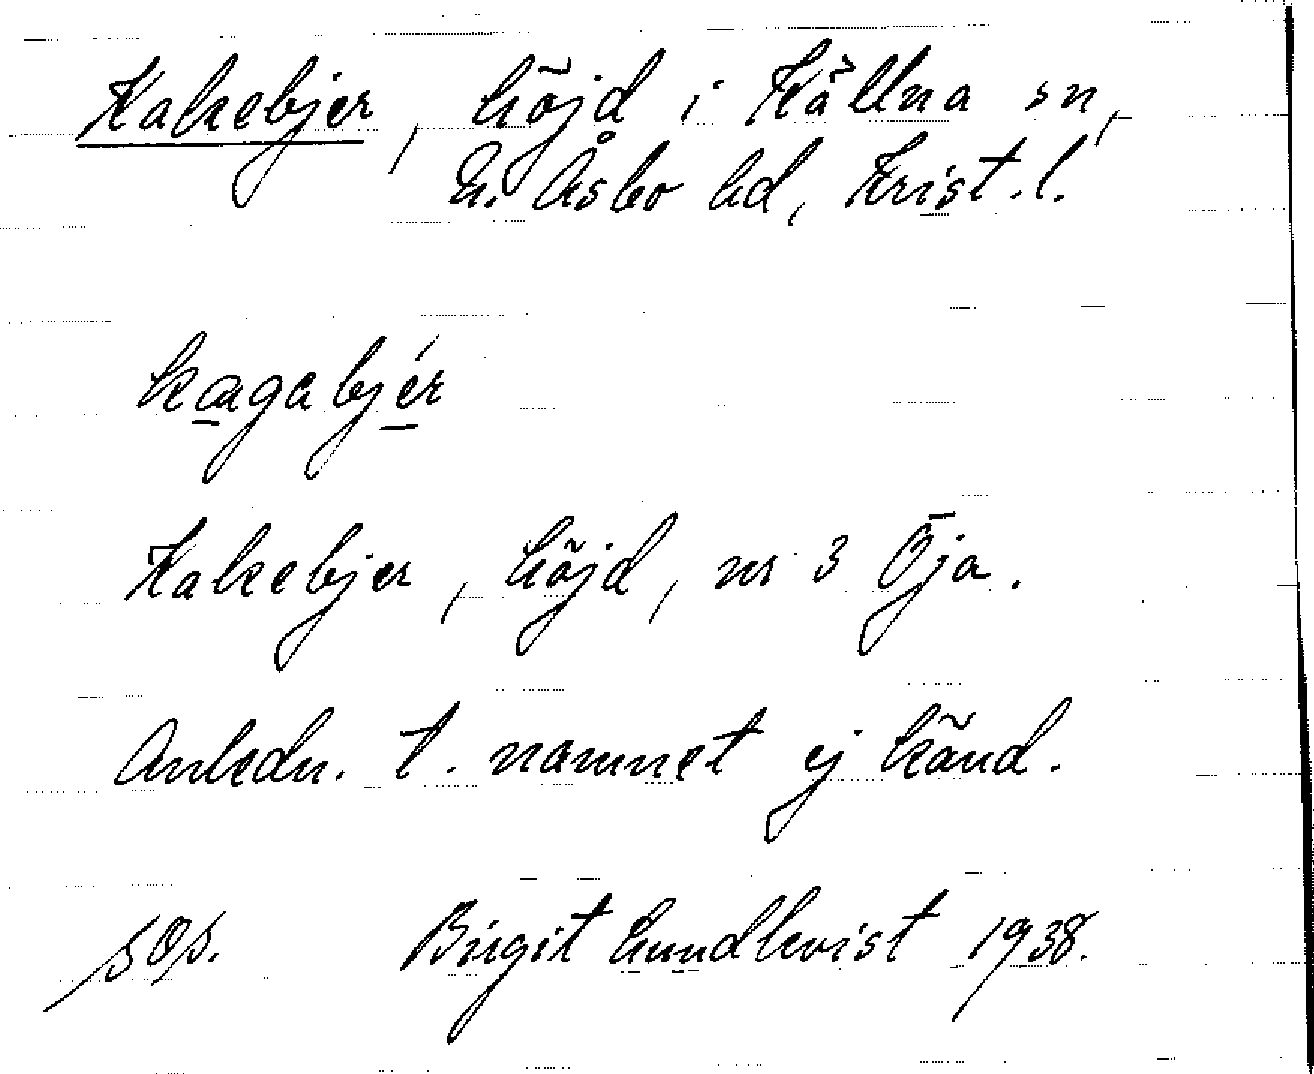 Kakebjer, höjd i Källna sn,
N. Åsbo hd, Krist. l.
kagabjér
Kakebjer, höjd, nr 3 Öja.
Anledn. t. namnet ej känd.
Birgit Lundkvist 1938.